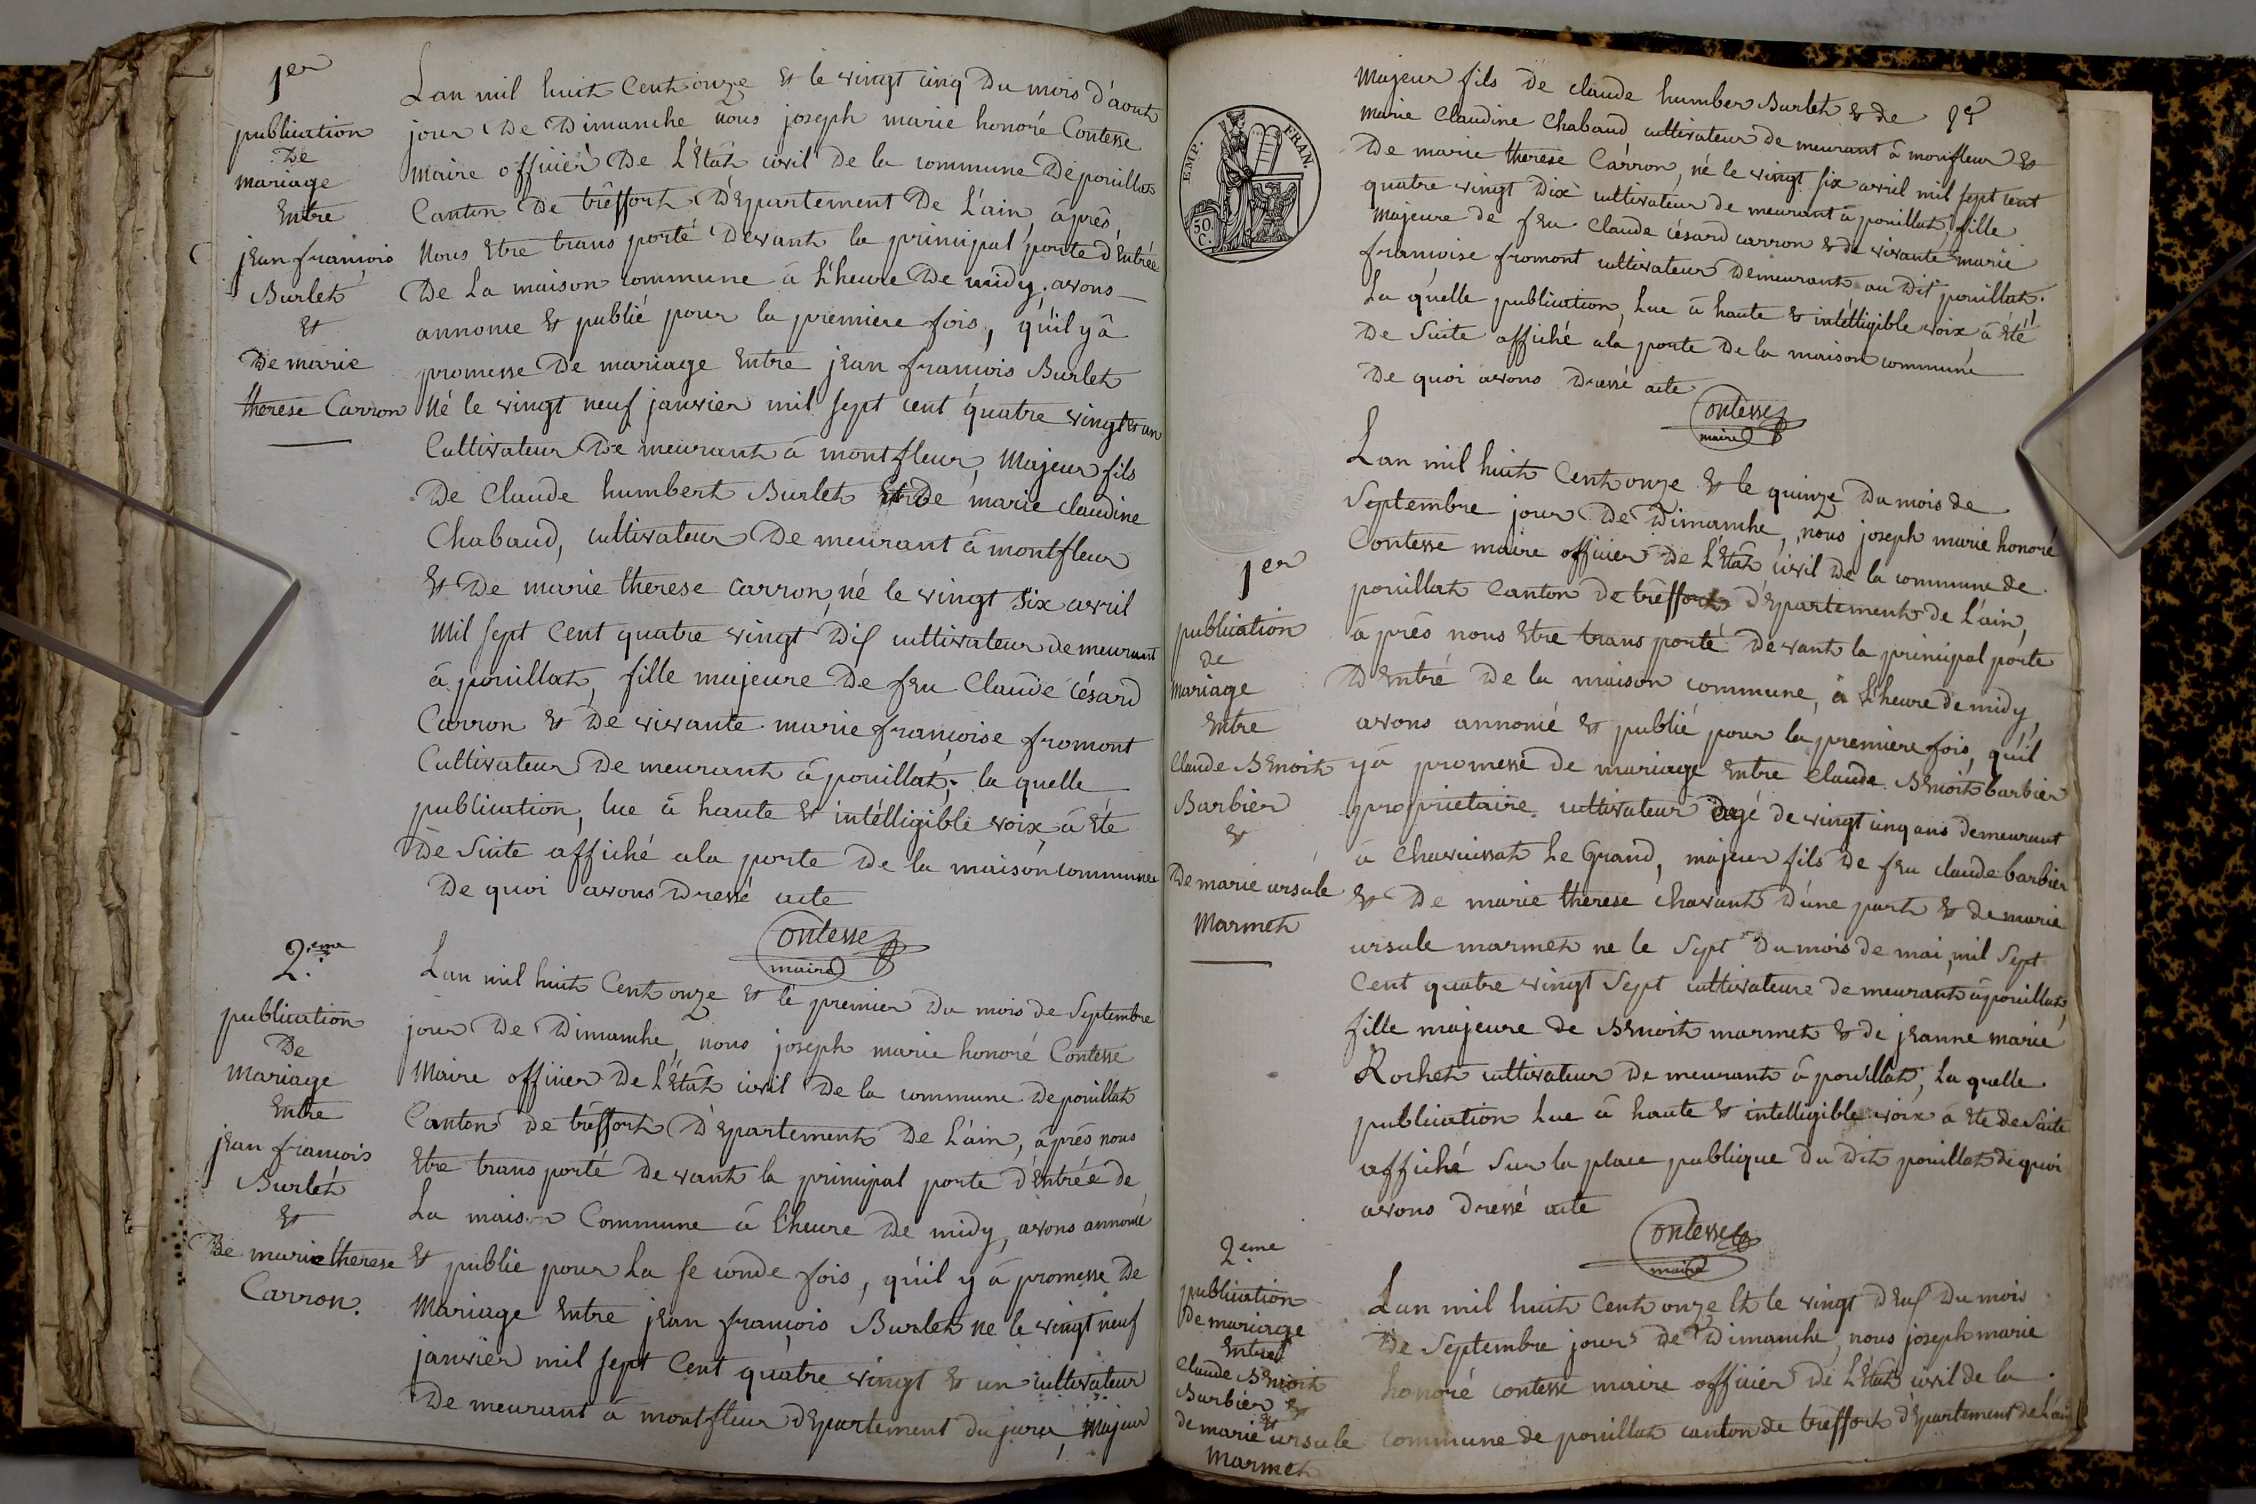 1er
publication
De
mariage
Entre
jean francois
Burlet
et
De marie
therese Carron
Lan mil huit Cent onze et le vingt cinq Du mois d'aout
jour De Dimanche nous joseph marie honoré Contesse
Maire officier De L'Etât civil De la commune De pouillat
Canton De trêffort D'Epartement De L'ain âprês
Nous Etre trans porté Devant la principal porte d'Entrée
De La maison commune â L'heure De midy, avons
annonce et publié pour la premiere fois, qu'il y â
promesse De mariage Entre jean francois Burlet
Né le vingt neuf janvier mil sept cent quatre vingt et un
Cultivateur De meurant â montfleur, Majeur fils
De Claude humbert Burlet et De marie claudine
Chabaud, cultivateur De meurant â montfleur
et De marie therese carron, né le vingt six avril
Mil sept Cent quatre vingt Dix cultivateur demeurant
â pouillat, fille majeure De feu Claude Césard
Carron et De vivante marie francoise fromont
Cultivateur De meurant â pouillat, la quelle
publication, lue â haute et intélligible voix â été
De Suite affiché ala porte De la maison commune
De quoi avons Dressé acte
Contesse
maire
2.eme
publication
De
Mariage
Entre
jean francois
Burlet
et
De marie therese
Carron.
Lan mil huit Cent onze et le premier Du mois de Septembre
jour De Dimanche, nous joseph marie honoré Contesse
Maire officier De L'Etât civil De la commune De pouillat
Canton De trêffort D'Epartement De L'ain, âprês nous
Etre trans porté De vant la principal porte d'Entrée de
La maison Commune â L'heure De midy, avons annoncé
et publie pour La se conde fois, qu'il y â promesse De
Mariage Entre jean francois Burlet ne le vingt neuf
janvier mil sept Cent quatre vingt et un cultivateur
De meurant â montfleur d'Epartement du jura, Majeur
EMP. FRAN.
50. C.
Majeur fils De claude humber Burlet et de
Marie Claudine Chabaud cultivateur de meurant â monfleur et
De marie therese Carron, né le vingt six avril mil sept cent
quatre vingt Dix cultivateur de meurant â pouillat, fille
majeure de feu Claude césard carron et de vivante marie
francoise fromont cultivateur Demeurant au Dit pouillat.
La quelle publication, Lue â haute et intélligible voix â été
De Suite affiché ala porte De la maison commune
De quoi avons Dressé acte
Contesse
maire
1er
publication
de
Mariage
Entre
Claude Benoit
Barbier
et
De marie ursule
Marmet
Lan mil huit Cent onze et le quinze Du mois de
Septembre jour De Dimanche, nous joseph marie honoré
Contesse maire officier De L'Etât civil De la commune de
pouillat Canton De trêffort D'Epartement de L'ain,
â prês nous Etre trans porté De vant la principal porte
D'Entré De la maison commune, â L'heure De midy,
avons annoncé et publié pour la premiere fois, qu'il
y â promesse de mariage Entre Claude Benoit barbier
proprietaire cultivateur agé de vingt cinq ans demeurant
â Chavussiat Le Grand, majeur fils De feu claude barbier
et De marie therese chavant D'une part et de marie
ursule marmet ne le Sept Du mois de mai, mil Sept
Cent quatre vingt Sept cultivateure de meurant â pouillat,
fille majeure de Benoit marmet et de jeanne marie
Rochet cultivateur De meurant â pouillat, La quelle
publication Lue â haute et intelligible voix â Ete de Suite
affiché Sur la place publique Du Dit pouillat de quoi
avons Dressé acte
Contesse
maire
2.eme
publication
De mariage
Entre
Claude Benoit
Barbier et
de marie ursule
Marmet
Lan mil huit Cent onze et le vingt Deux Du mois
De Septembre jour De Dimanche, nous joseph marie
honoré contesse maire officier De L'Etât civil de la
commune de pouillat canton de trêffort d'Epartement de L'ain